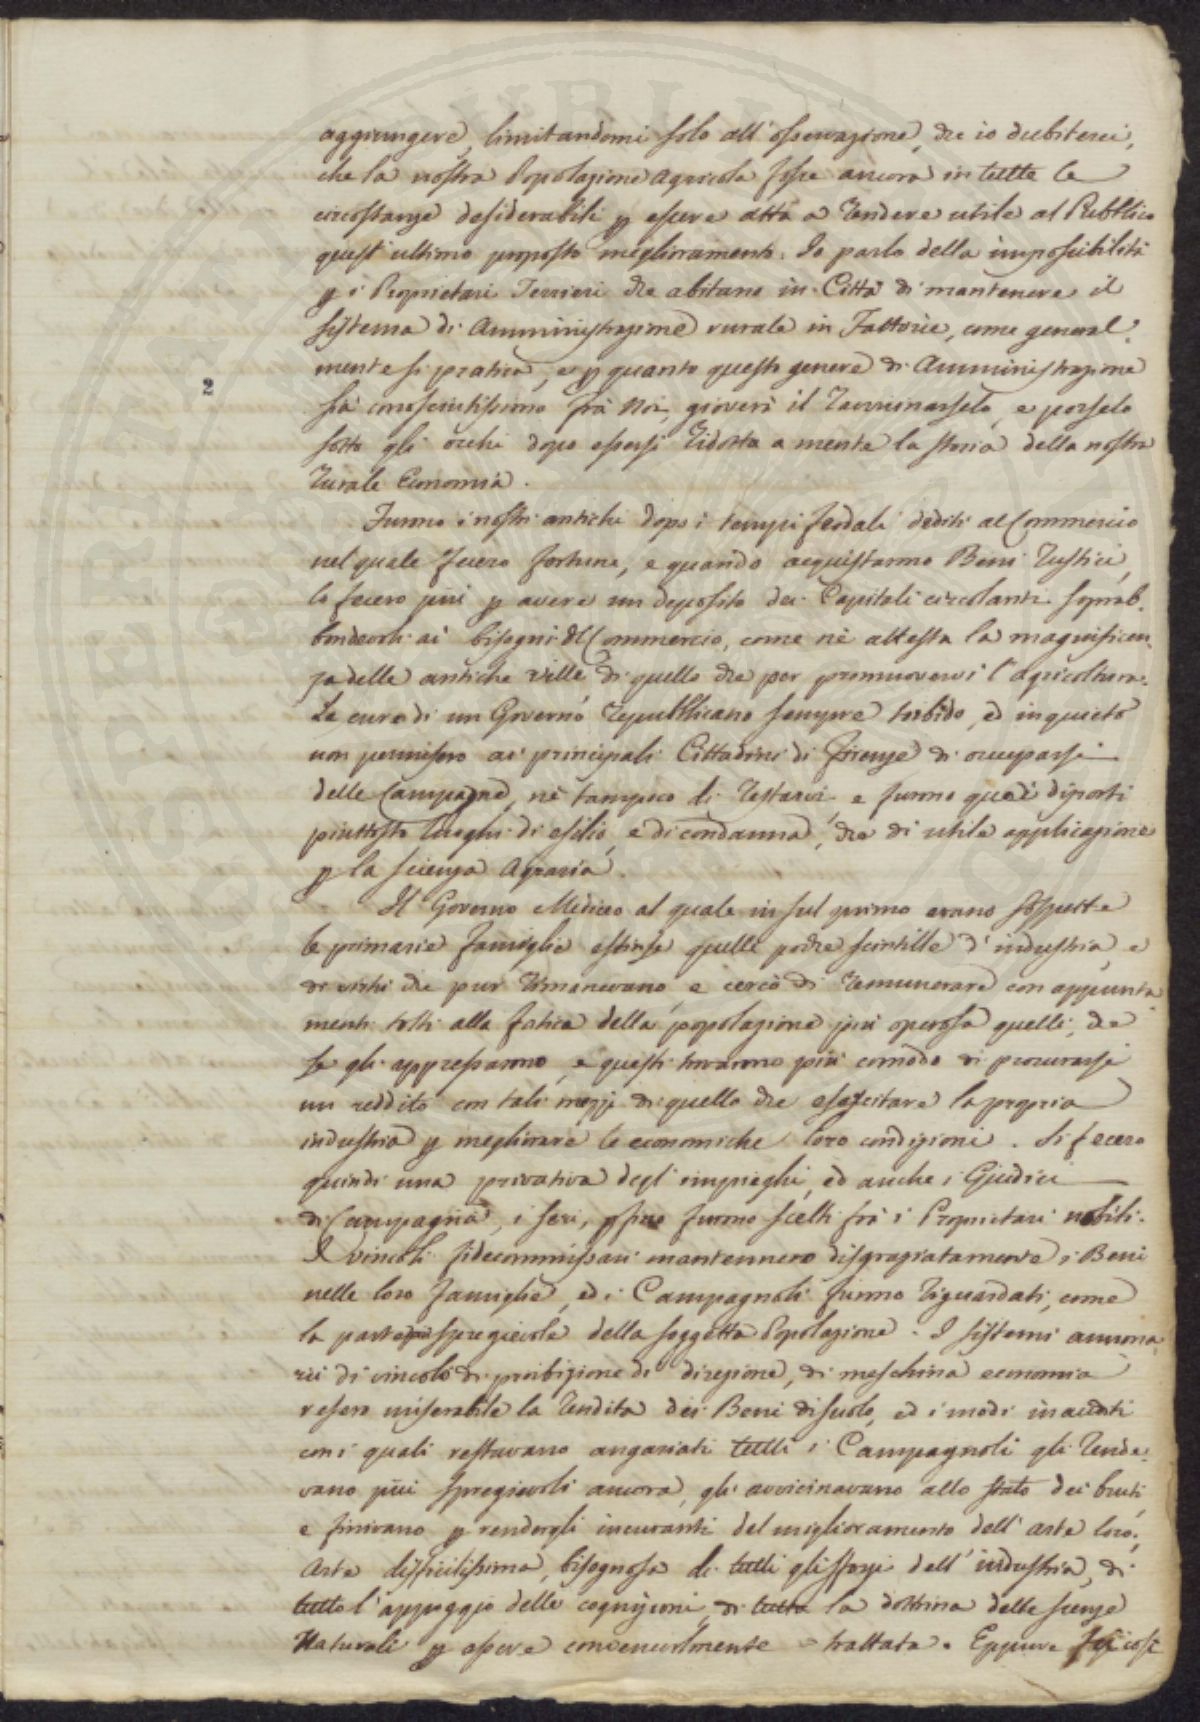 aggiungere, limitandomi solo all'osservazione, che io dubiterei,
che la nostra Popolazione Agricola fosse ancora in tutte le
circostanze desiderabili p essere atta a rendere utile al Pubblico
quest'ultimo proposto miglioramento. Io parlo della impossibilità
p i Proprietari Terrieri che abitano in Città di mantenere il
sistema di Amministrazione rurale in Fattorie, come general-
mente si pratica, e p quanto questo genere di Amministrazione
sia conosciutissimo frà Noi, gioverà il ravvicinarselo, e porselo
sotto gli occhi dopo essersi ridotta a mente la storia della nostra
rurale Economia.
Furono i nostri antichi dopo i tempi feodali dediti al Commercio
nel quale fecero fortuna, e quando acquistarono Beni rustici,
lo fecero più p avere un deposito dei Capitali circolanti soprab-
bondevoli ai bisogni del Commercio, come nè attesta la magnificen-
za delle antiche ville, di quello che per promuovervi l'agricoltura.
Le cure di un Governo repubblicano sempre torbido, ed inquieto
non permisero ai principali Cittadini di Firenze di occuparsi
delle Campagne, nè tampoco di restarvi e furono quei diporti
piuttosto luoghi di esilio, e di condanna, che di utile applicazione
p la scienza Agraria.
Il Governo Mediceo al quale in sul primo erano sospette
le primarie famiglie estinse quelle poche scintille d'industria, e
di virtù che pur rimanevano, e cercò di remunerare con appunta
menti tolti alla fatica della popolazione più operosa quelli, che
se gli appressarono, e questi trovarono più comodo di procurarsi
un reddito con tali mezzi di quello che esercitare la propria
industria p migliorare le economiche loro condizioni. Si fecero
quindi una privativa degl'impieghi, ed anche i Giudici
di Campagna, i feri, p fino furono scelti frà i Proprietari nobili.
I vincoli fidecommissari mantennero disgraziatamente i Beni
nelle loro famiglie, ed i Campagnoli furono riguardati, come
la parte spregievole della soggetta Popolazione. I sistemi annona-
rii di vincolo di proibizione di direzione, di meschina economia
resero miserabile la rendita dei Beni di suolo, ed i modi inauditi
con i quali restavano angariati tutti i Campagnoli gli rende-
vano più spregievoli ancora, gli avvicinavano allo stato dei bruti
e finivano p rendergli incuranti del miglioramento dell'arte loro,
Arte difficilissima, bisognosa di tutti gli sforzi dell'industria, di
tutto l'appoggio delle cognizioni, di tutta la dottrina delle scienze
Naturali p essere convenevolmente trattata. Eppure così
2